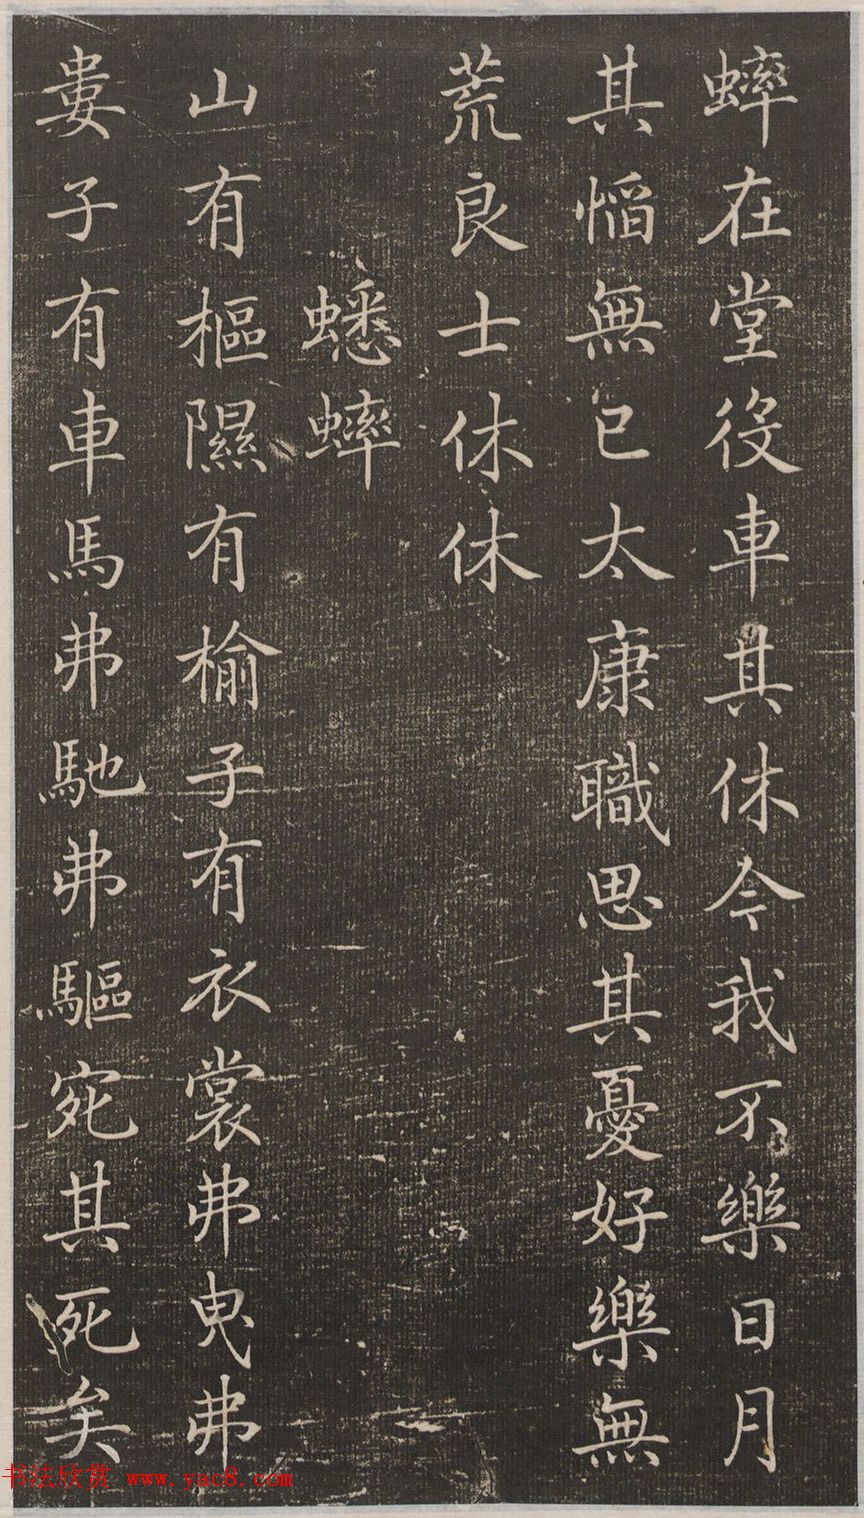 蟀在堂役車其休今我不樂日月
其慆無已太康職思其憂好樂無
荒良士休休
蟋蟀
山有樞隰有榆子有衣裳弗曳弗
婁子有車馬弗馳弗驅宛其死矣
书法欣赏 www.yac8.com